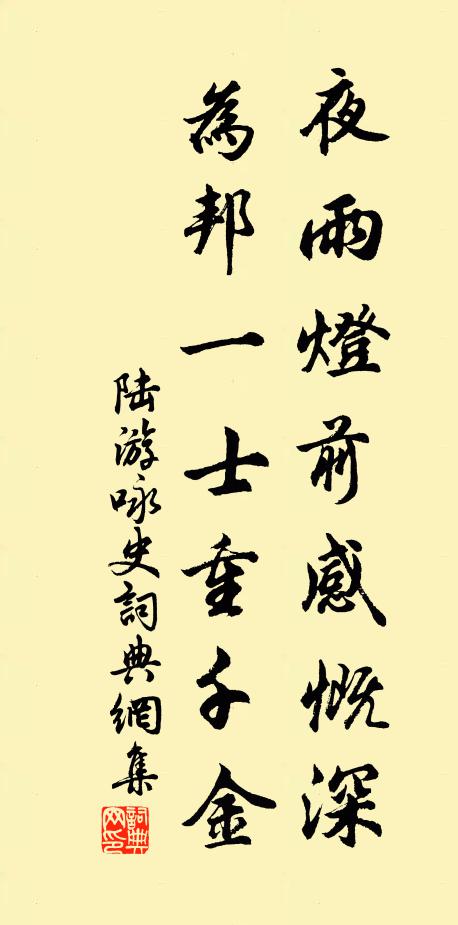 夜雨燈前感慨深
為邦一士重千金
陆游咏史詞典網集
詞典
网印